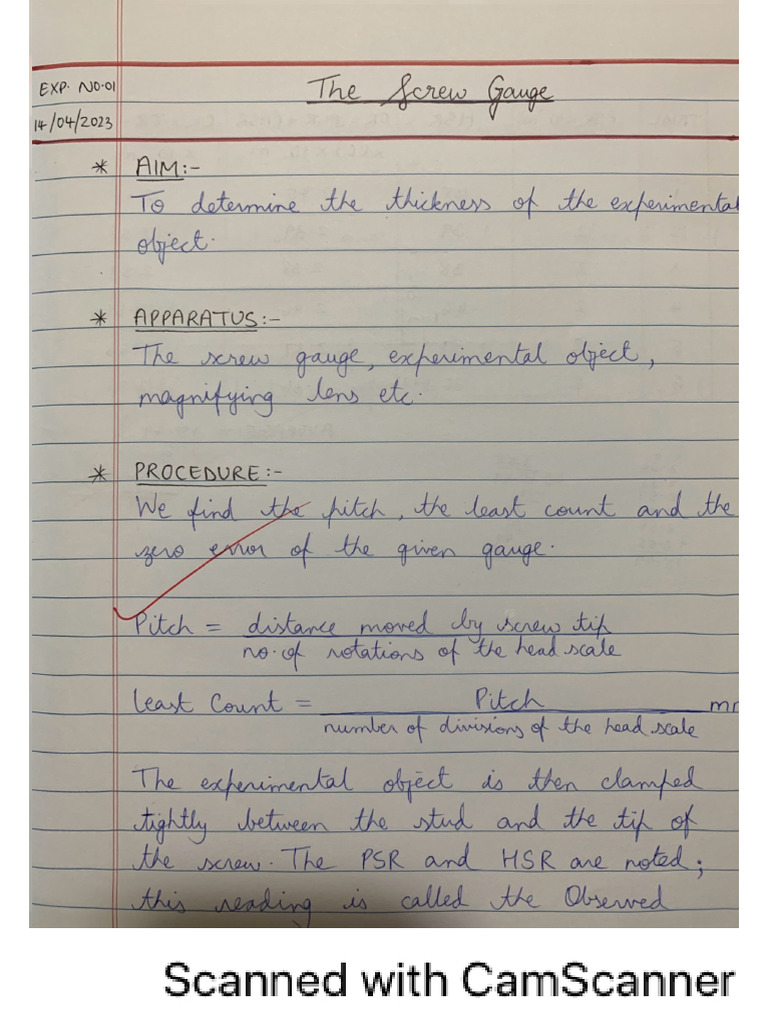 EXP. NO.01
The Screw Gauge
14/04/2023
* AIM:-
To determine the thickness of the experimental
object.
* APPARATUS:-
The screw gauge, experimental object,
magnifying lens etc.
* PROCEDURE:-
We find the pitch, the least count and the
zero error of the given gauge.
Pitch = distance moved by screw tip
no. of rotations of the head scale
Least Count = Pitch
number of divisions of the head scale
The experimental object is then clamped
tightly between the stud and the tip of
the screw. The PSR and HSR are noted;
this reading is called the Observed
Scanned with CamScanner